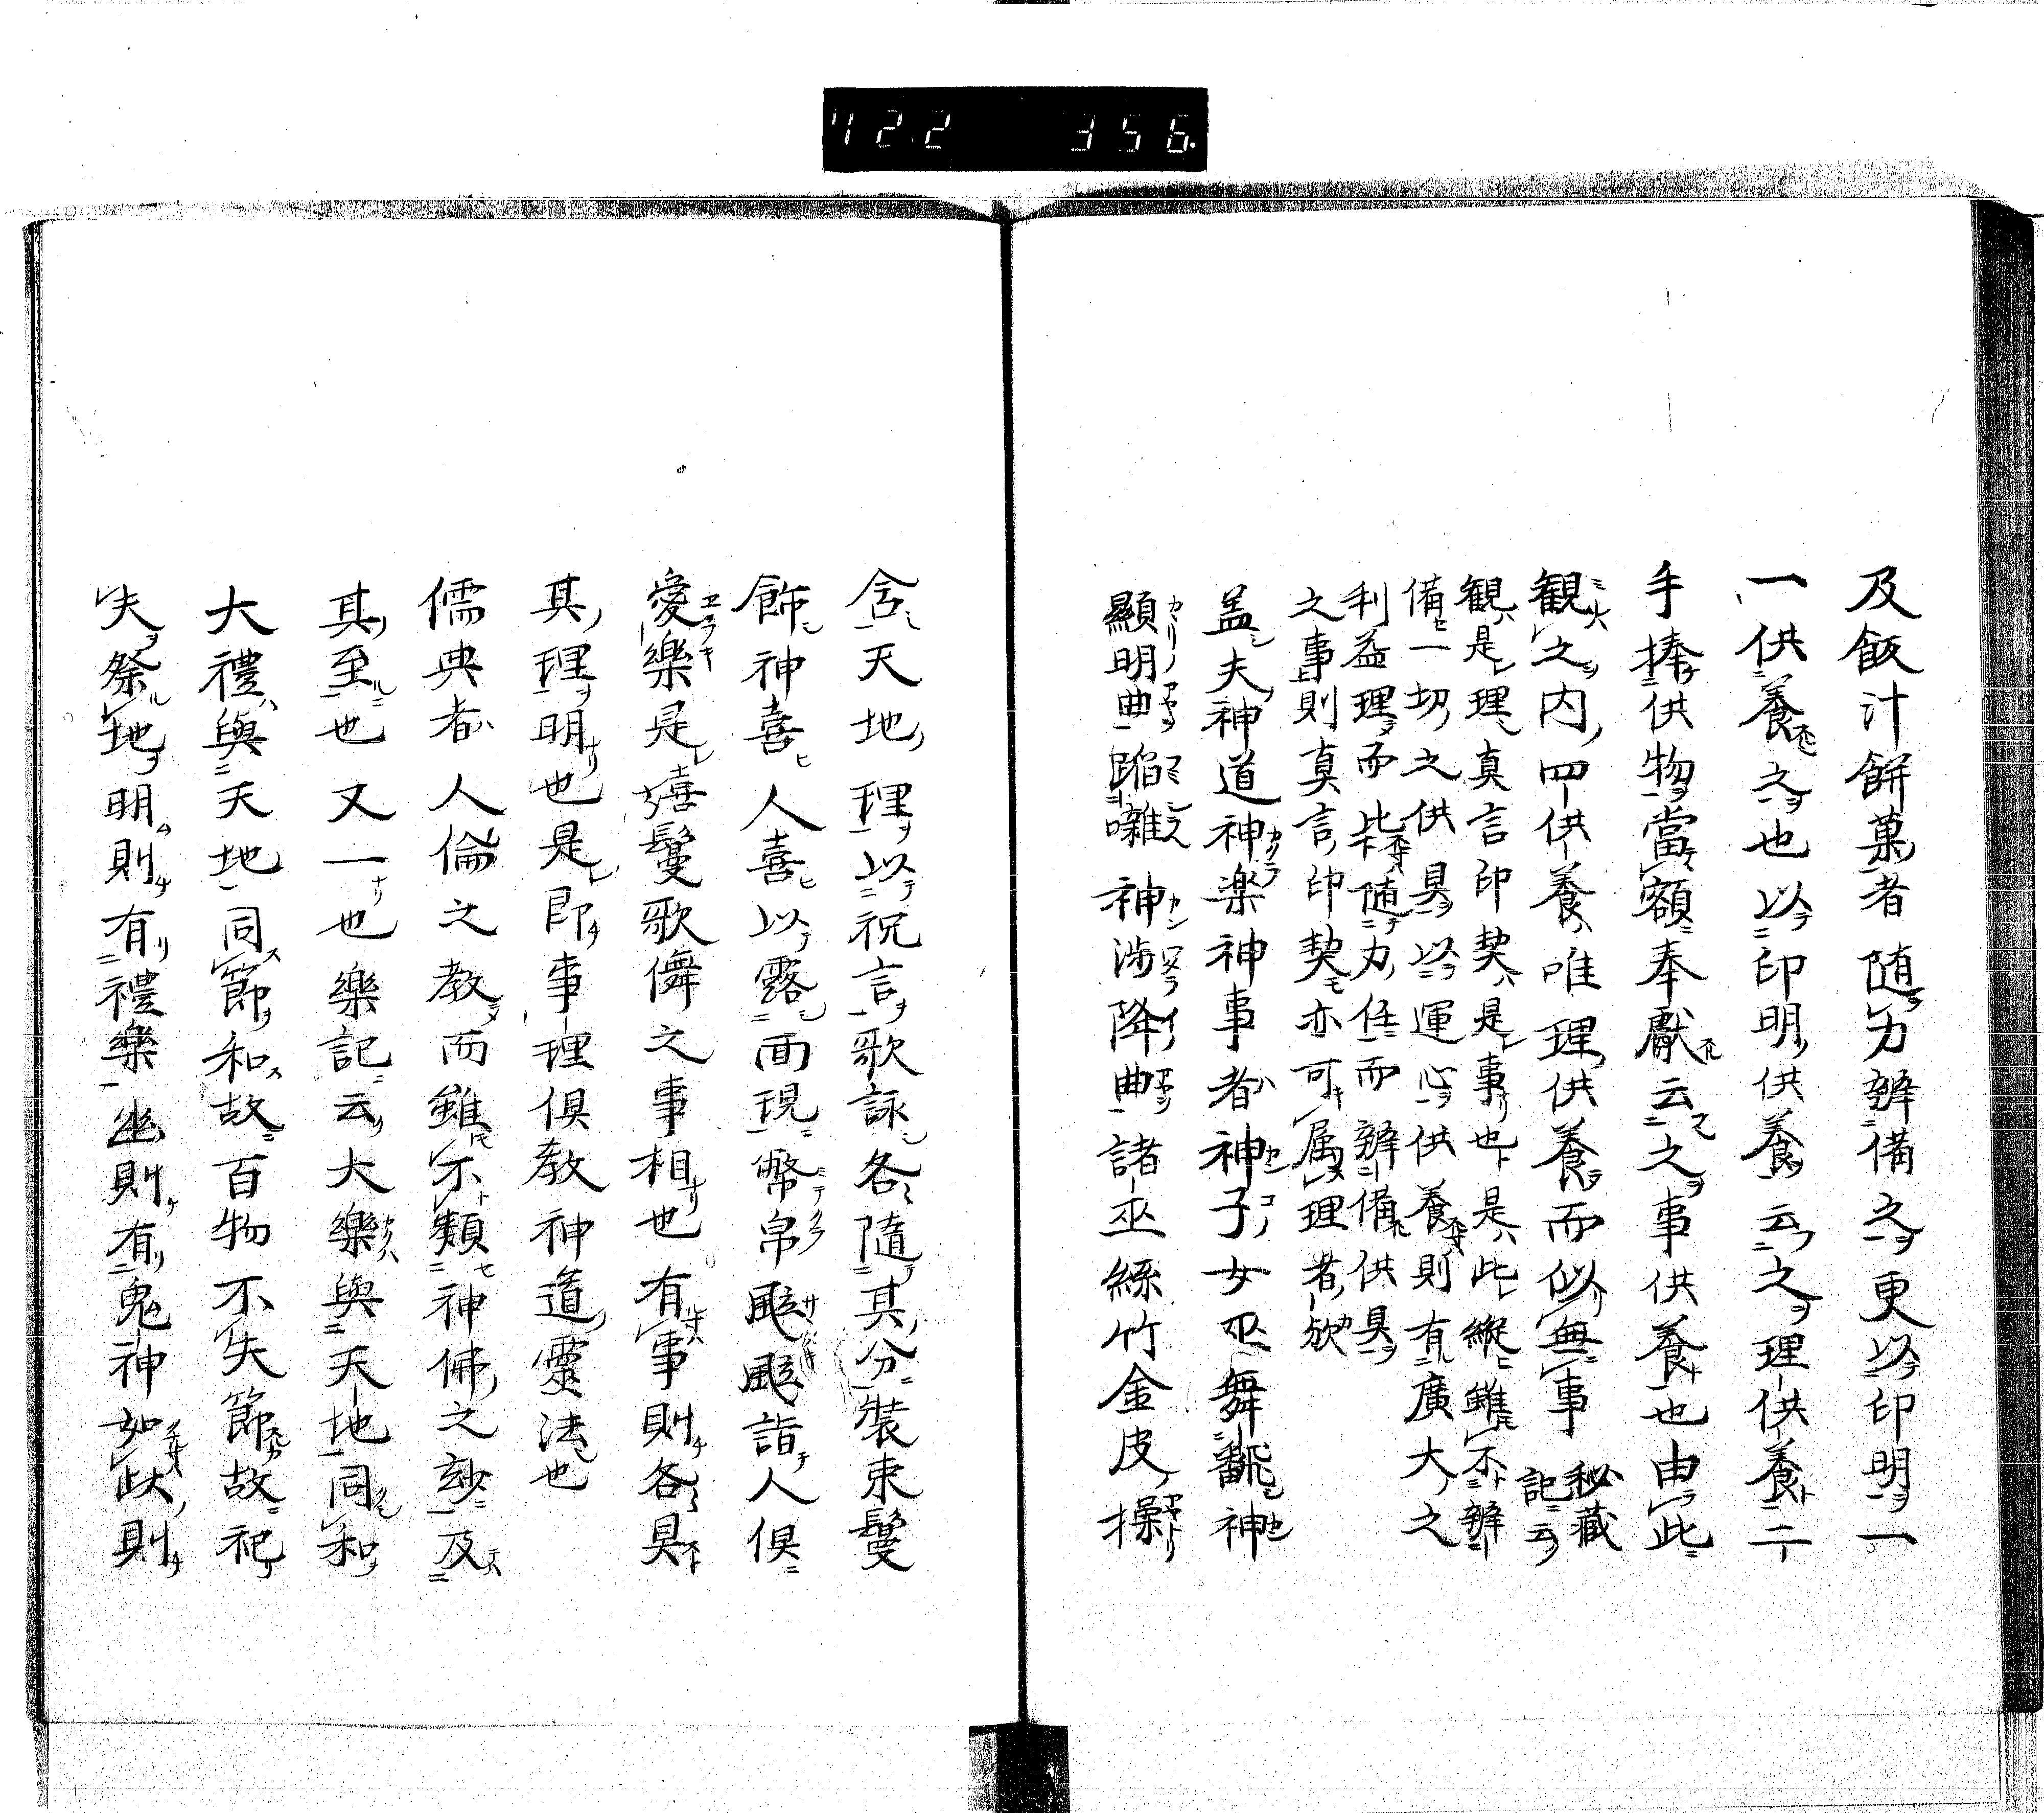 722 356
及飯汁餅菓者随力辨備之更以印明一
一供養之也以印明供養云之理供養二
手捧供物當額奉獻云之事供養也由此
観之内四供養唯理供養而似無事 秘藏記云
観是理真言印契是事也是此縦雖不辨
備一切之供具以運心供養則有廣大之
利益理而比随力任而辨備供具
之事則真言印契亦可属理者欤
盖夫神道神楽神事者神子女巫舞翻神
顯明曲蹈囃神渉降曲諸巫絲竹金皮操
含天地理以祝言歌詠各隨其分装束鬘
飾神喜人喜以露面現幣帛颭颭詣人俱
愛樂是嘻鬘歌儛之事相也有事則各具
其理明也是即事理俱教神道靈法也
儒典者人倫之教而雖不類神佛之玅及
其至也又一也樂記云大樂與天地同和
大禮與天地同節和故百物不失節故祀
夫祭地明則有禮樂幽則有鬼神如此則